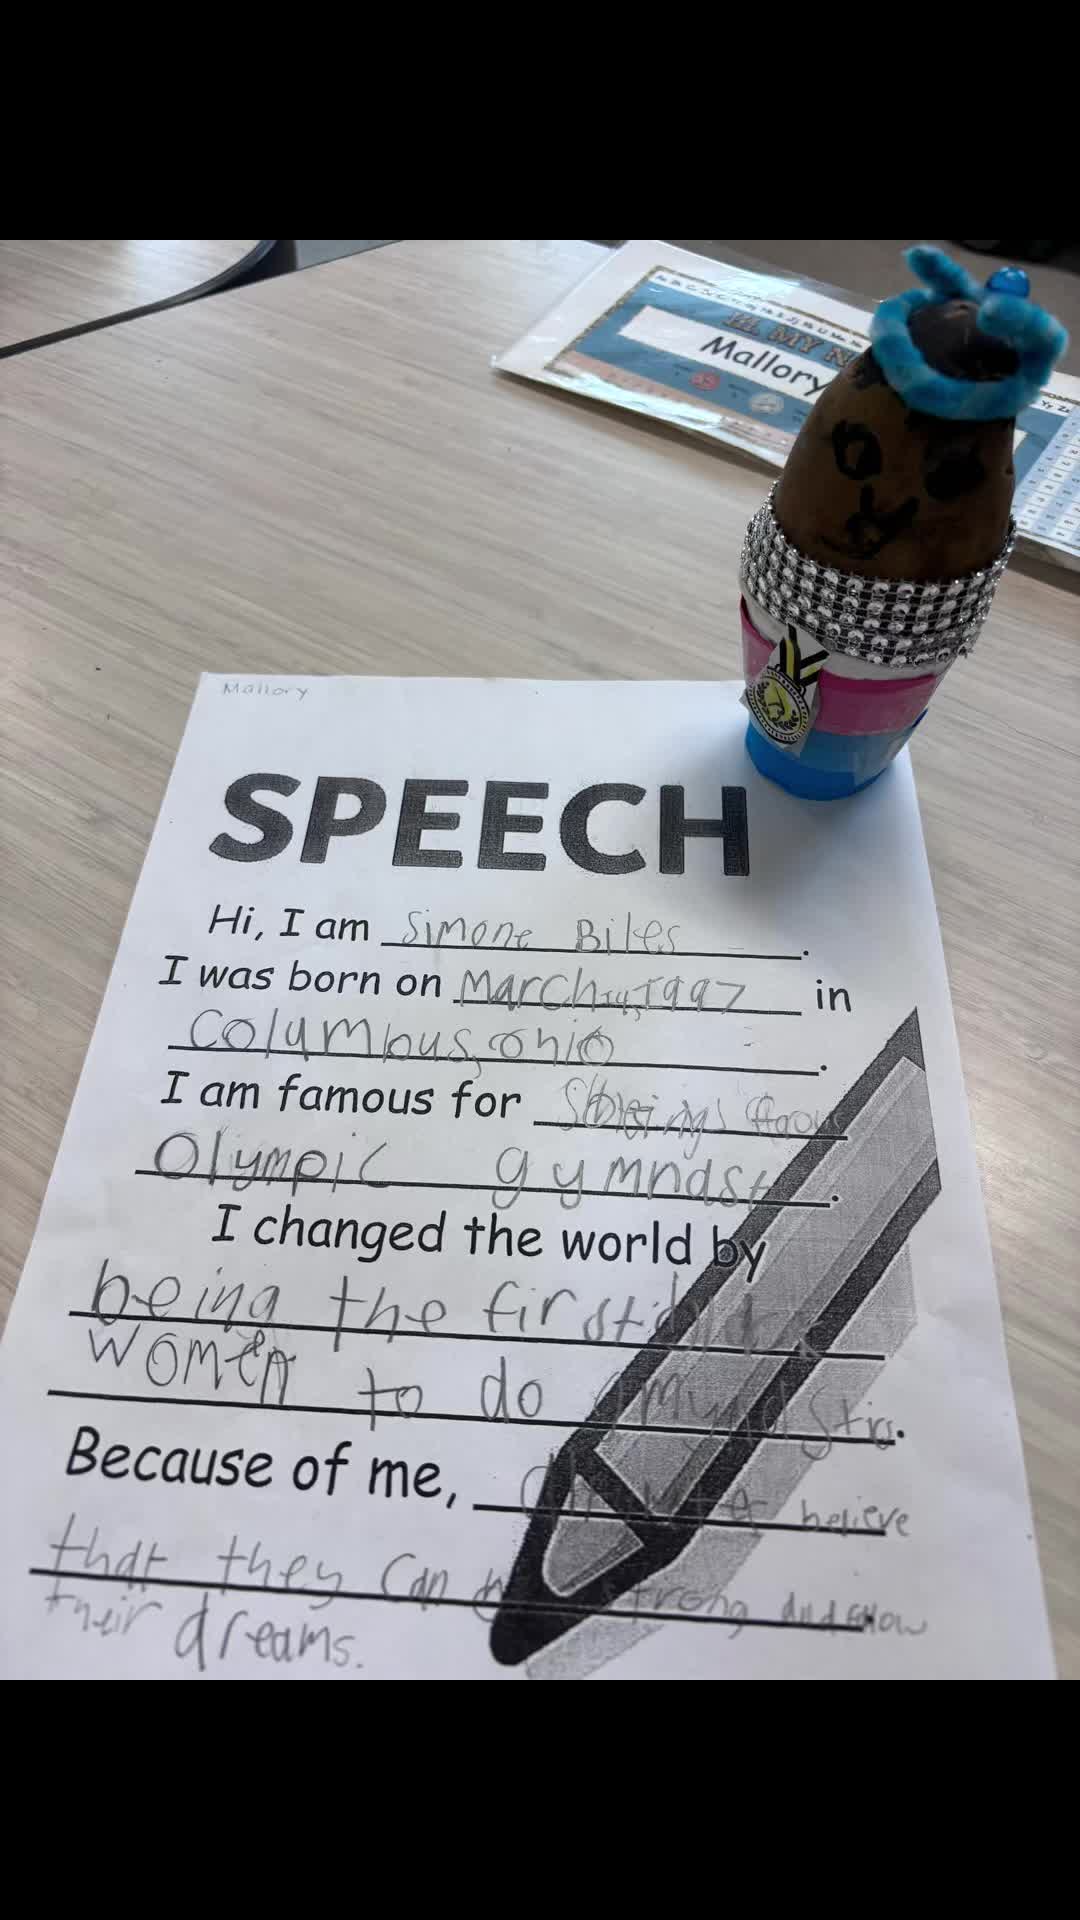 HI, MY N
Mallory
Mallory
SPEECH
Hi, I am Simone Biles.
I was born on March 14, 1997 in
Columbus, ohio.
I am famous for
Olympic gymndst.
I changed the world by
being the first
women to do
Because of me, believe
that they can strong and follow
their dreams.